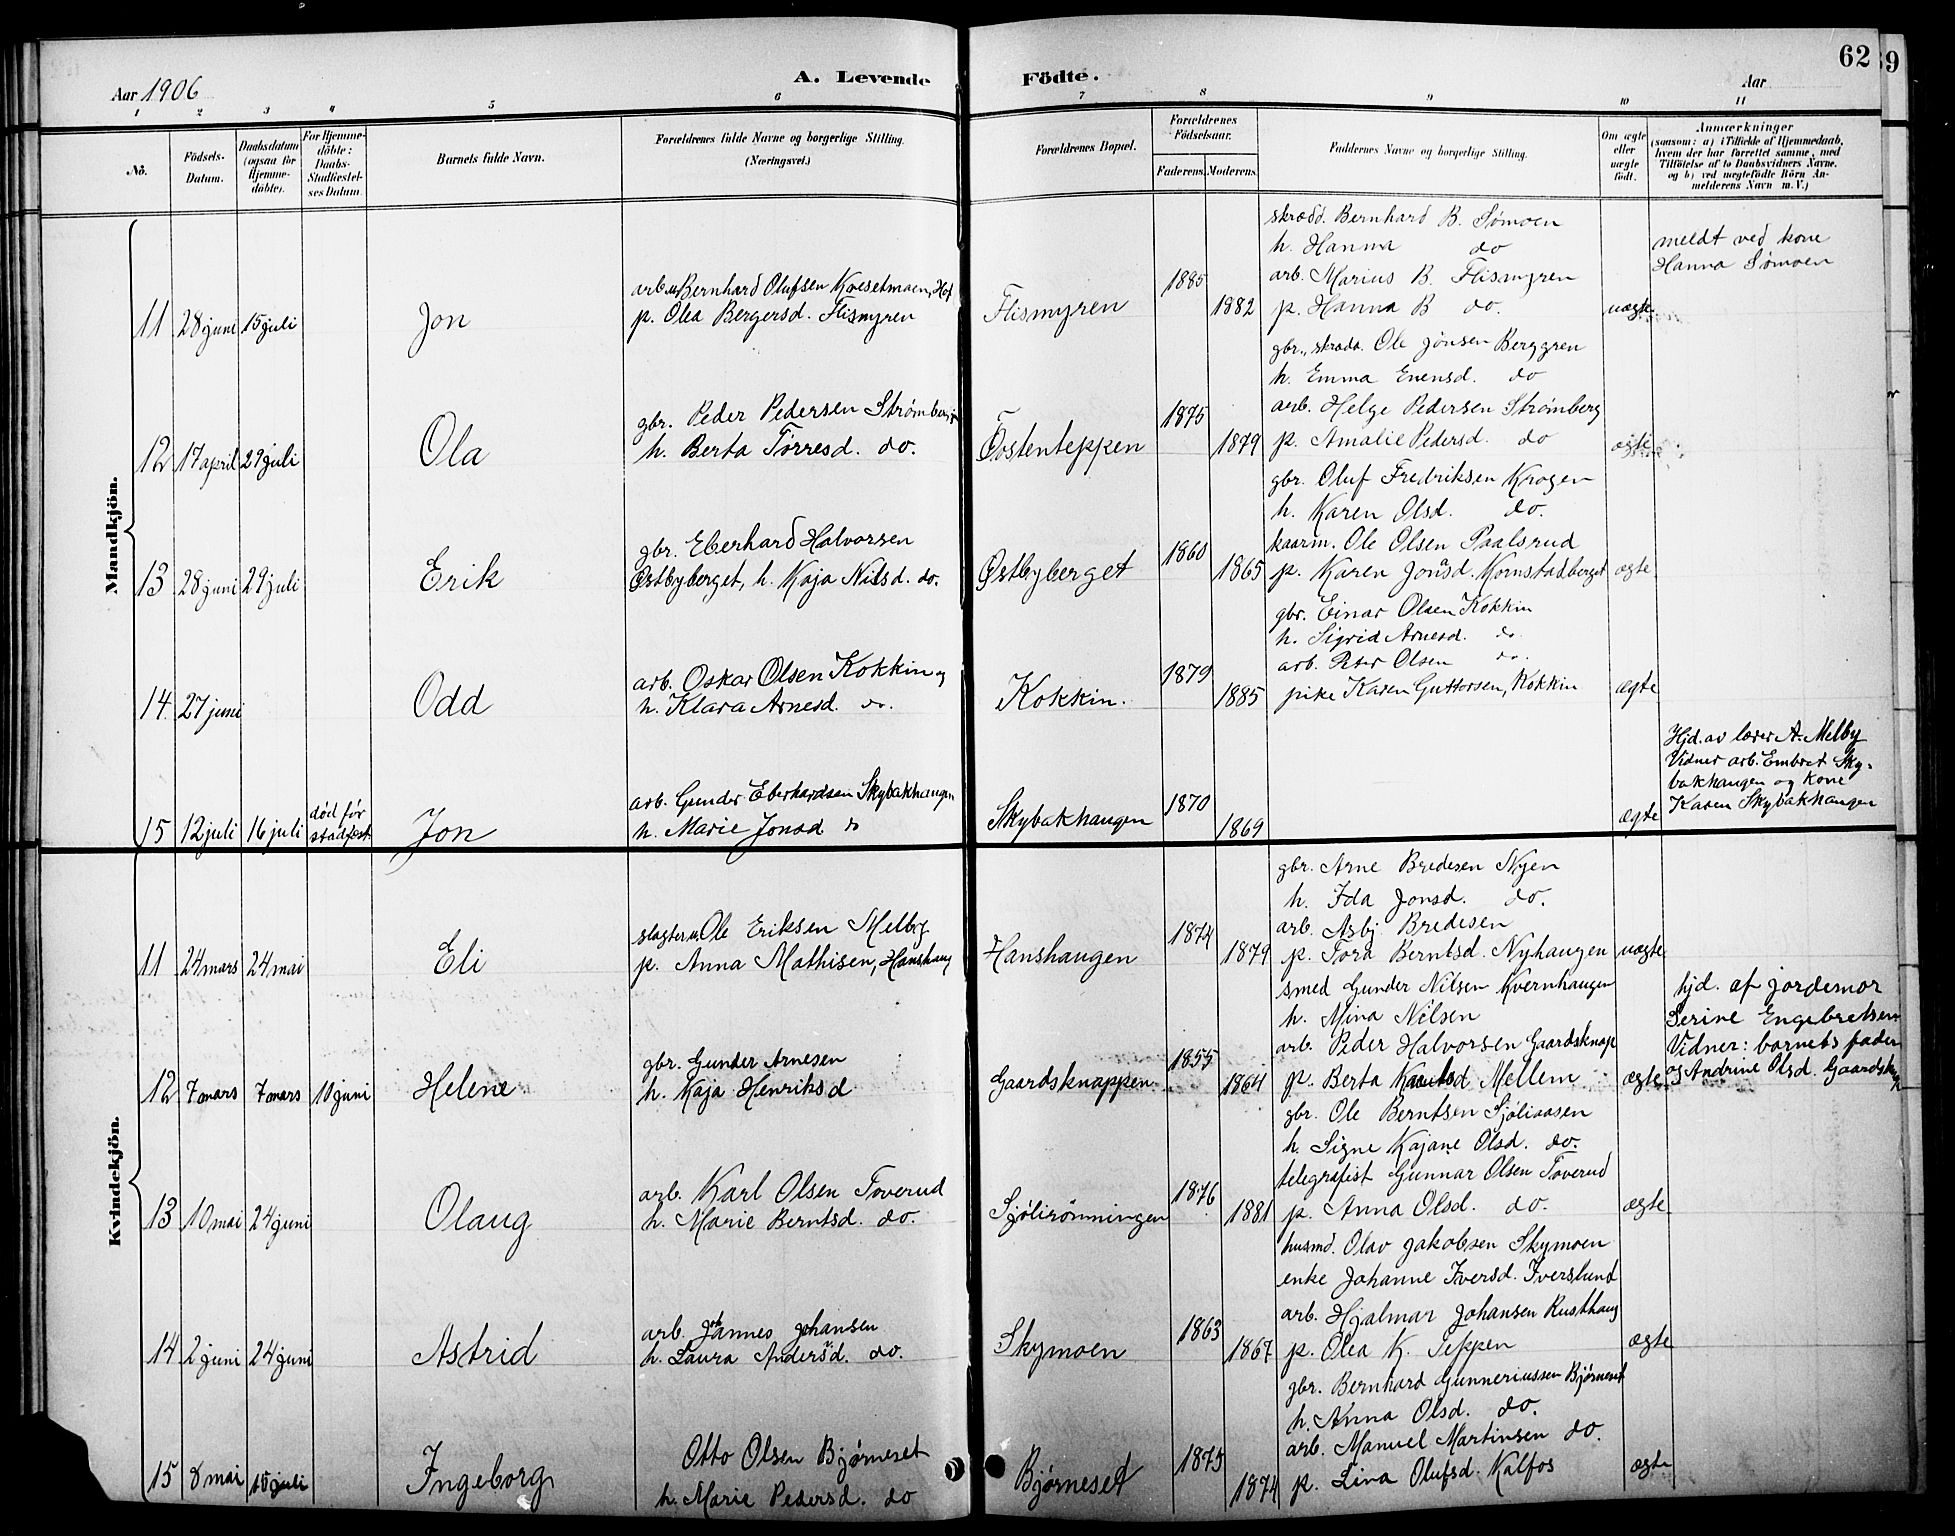 62
39
Aar 1906
A. Levende Födte.
Aar
1 2 3 4 5 6 7 8 9 10 11
No.
Födsels-
Datum.
Daabsdatum
(ogsaa for
Hjemme-
döbte).
For Hjemme-
döbte:
Daabs-
Stadfæstel-
ses Datum.
Barnets fulde Navn.
Forældrenes fulde Navne og borgerlige Stilling.
(Næringsvei.)
Forældrenes Bopæl.
Forældrenes
Födselsaar.
Faderens. Moderens.
Faddernes Navne og borgerlige Stilling.
Om ægte
eller
uægte
födt.
Anmærkninger
(saasom: a) i Tilfælde af Hjemmedaab,
hvem der har forrettet samme, med
Tilföielse af to Daabsvidners Navne,
og b) ved uægtefödte Börn An-
melderens Navn m. V.)
Mandkjön.
11 28 juni 15 juli
Jon
arb. u. Bernhard Olufsen Kvesetmoen, Hof
p. Olea Bergersd. Flismyren
Flismyren
1885
1882
skrædd. Bernhard B. Sømoen
h. Hanna do
arb. Marius B. Flismyren
p. Hanna B do.
gbr., skrædd. Ole Jønsen Berggren
uægte
meldt ved kone
Hanna Sømoen
12 17 april 29 juli
Ola
gbr. Peder Pedersen Strømberg
h. Berta Tørresd. do.
Tostenteppen
1875
1879
h. Emma Evensd. do
arb. Helge Pedersen Strømberg
p. Amalie Pedersd. do
ægte
13 28 juni 29 juli
Erik
gbr. Eberhard Halvorsen
Østbyberget, h. Kaja Nilsd. do.
Østbyberget
1860
1865
gbr. Oluf Fredriksen Krogen
h. Karen Olsd. do.
kaarm. Ole Olsen Paalsrud
p. Karen Jonsd. Kornstadberget
ægte
14. 27 juni
Odd
arb. Oskar Olsen Kokkin og
h. Klara Arnesd. do.
Kokkin.
1879
1885
gbr. Einar Olsen Kokkin
h. Sigrid Arnesd. do.
arb. Peter Olsen do.
pike Karen Guttorsen, Kokkin
ægte
15 12 juli 16 juli død før
stadfest
Jon
arb. Gunder Eberhardsen Skybakhaugen
h. Marie Jonsd do
Skybakhaugen
1870
1869
ægte
Hjd. av lærer A. Melby
Vidner arb. Embret Sky-
bakhaugen og kone
Karen Skybakhaugen
Kvindekjön.
11 24 mars 24 mai
Eli
slagter u. Ole Eriksen Melby
p. Anna Mathisen, Hanshaug
Hanshaugen
1874
1879
gbr. Arne Bredesen Nyen
h. Ida Jonsd. do.
arb. Asbj. Bredesen
p. Tora Berntsd. Nyhaugen
uægte
12 7 mars 7 mars 10 juni
Helene
gbr. Gunder Arnesen
h. Kaja Henriksd
Gaardsknappen
1855
1864
smed Gunder Nilsen Kvernhaugen
h. Mina Nilsen
arb. Peder Halvorsen Gaardsknap
p. Berta Knutsd Mellem
ægte
hjd. af jordemor
Serine Engebretsen
Vidner: barnets fader
og Andrine Olsd. Gaardskn
13 10 mai 24 juni
Olaug
arb. Karl Olsen Toverud
h. Marie Berntsd. do.
Sjølirønningen
1876
1881
gbr. Ole Berntsen Sjøliaasen
h. Signe Kajane Olsd. do.
telegrafist Gunnar Olsen Toverud
p. Anna Olsd. do.
ægte
14 2 juni 24 juni
Astrid
arb. Johannes Johansen
h. Laura Andersd. do.
Skymoen
1863
1867
husmd. Olav Jakobsen Skymoen
enke Johanne Iversd. Iverslund
arb. Hjalmar Johansen Rusthaug
p. Olea K. Teppen
ægte
15 8 mai 15 juli
Ingeborg
Otto Olsen Bjørneset
h. Marie Pedersd. do
Bjørneset
1875
1874
gbr. Bernhard Gunneriussen Bjørneset
h. Anna Olsd. do.
arb. Manuel Martinsen do.
p. Lina Olufsd. Kalfos
ægte